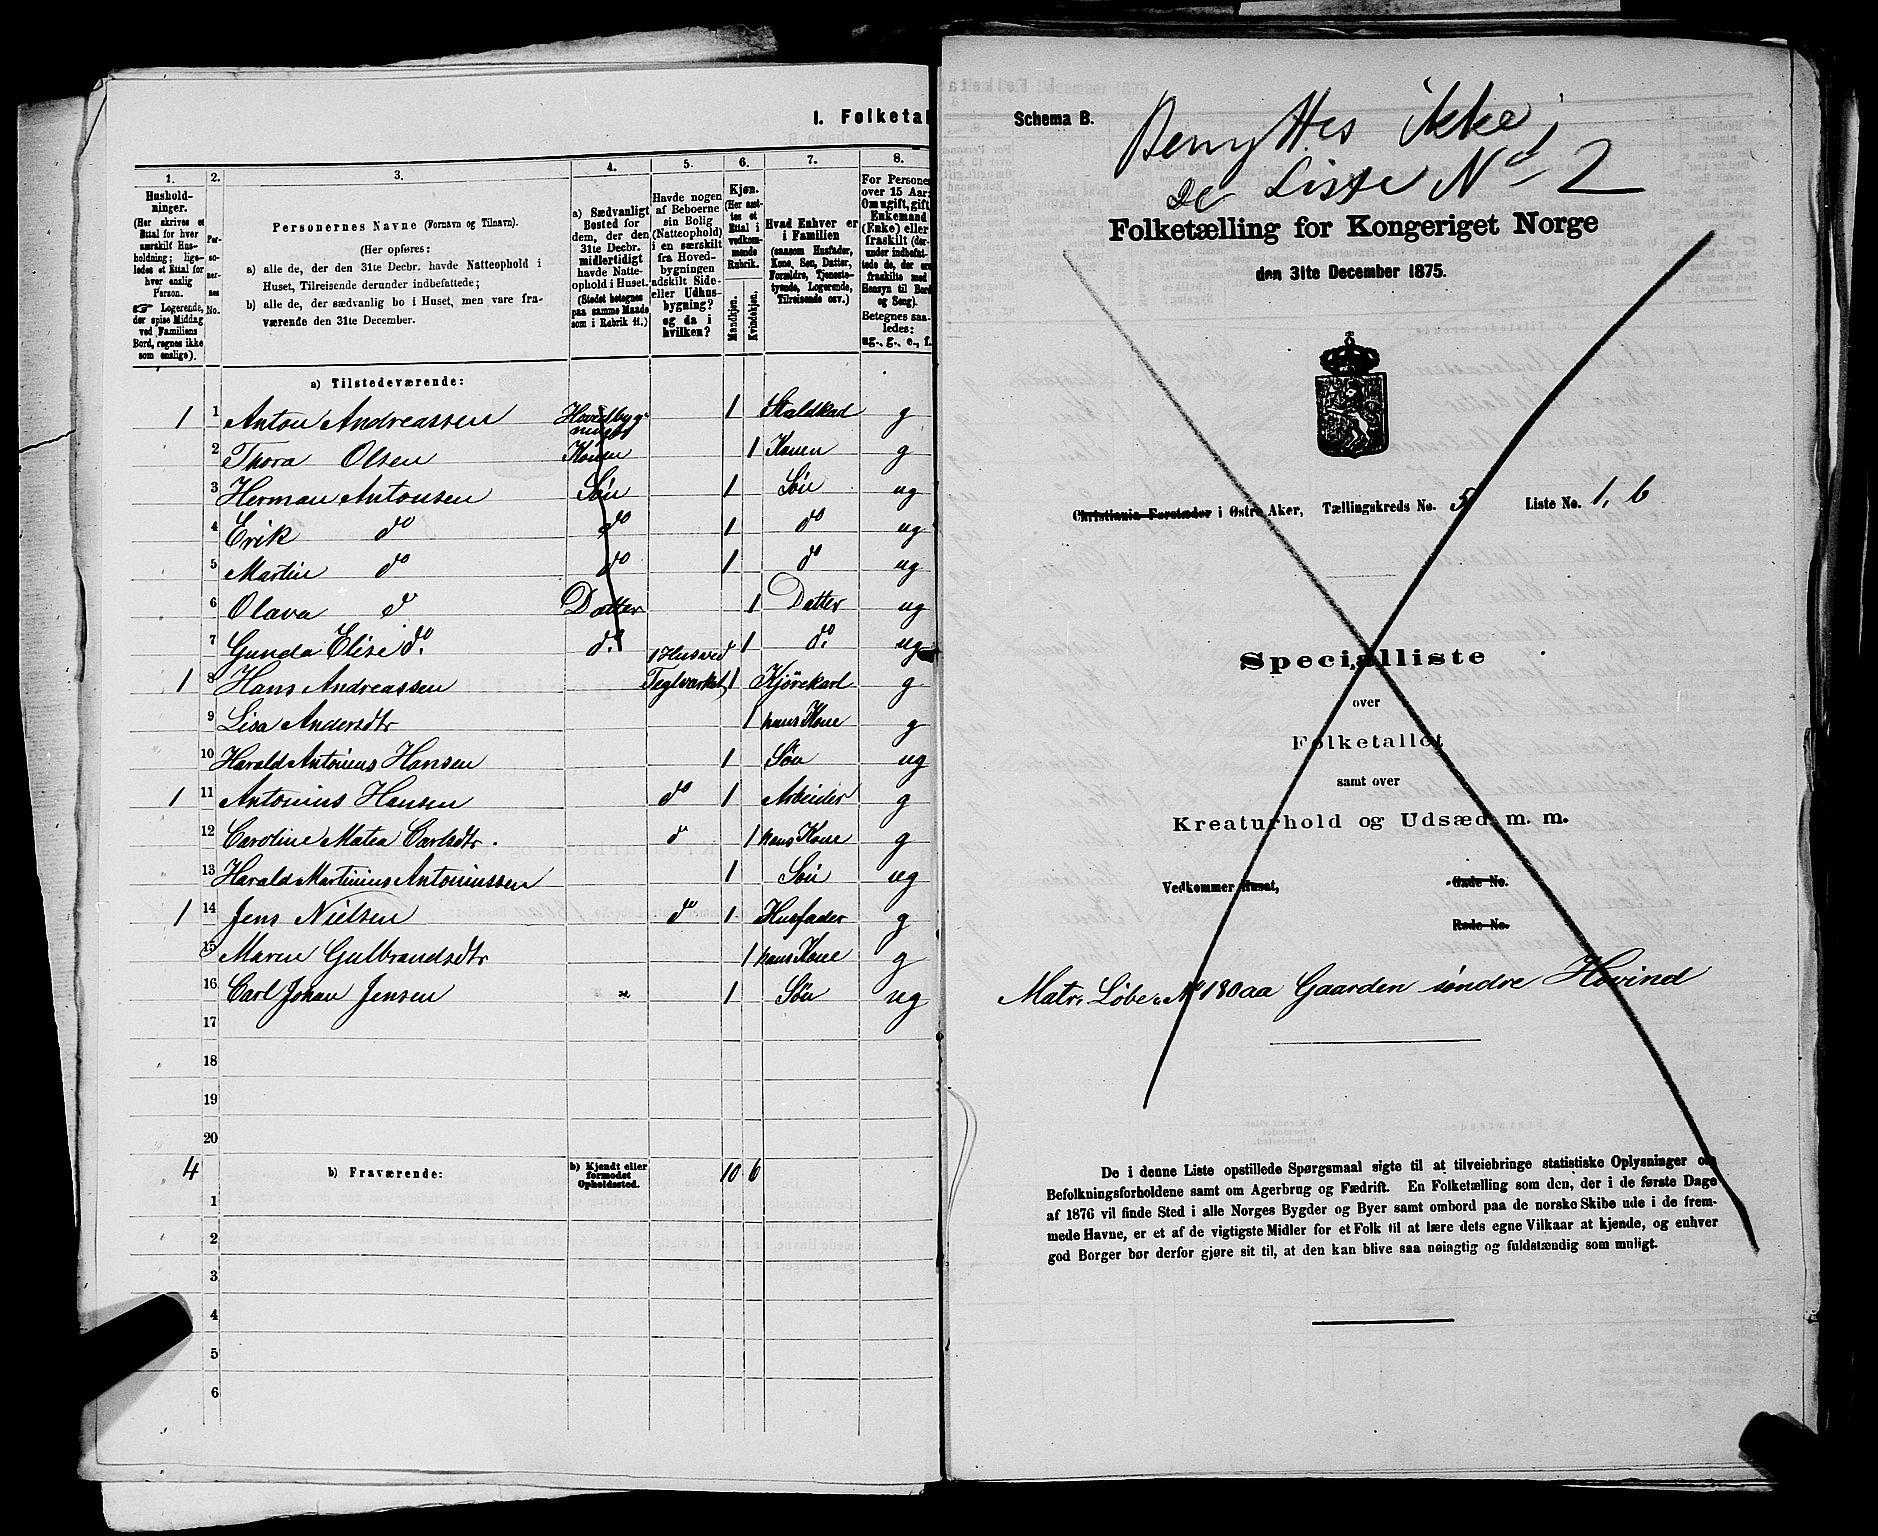 I. Folketal
1. 2. 3. 4. 5. 6. 7. 8.
Hushold-
ninger.
(Her skrives et
Ettal for hver
særskilt Hus-
holdning; lige-
ledes et Ettal for
hver enslig
Person.
☞ Logerende,
der spise Middag
ved Familiens
Bord, regnes ikke
som enslige).
Per-
so-
ner-
nes
No.
Personernes Navne (Fornavn og Tilnavn).
(Her opføres:
a) alle de, der den 31te Decbr. havde Natteophold i
Huset, Tilreisende derunder indbefattede;
b) alle de, der sædvanlig bo i Huset, men vare fra-
værende den 31te December.
a) Sædvanligt
Bosted for
dem, der den
31te Decbr.
midlertidigt
havde Natte-
ophold i Huset.
(Stedet betegnes
paa samme Maade
som i Rubrik 11.)
Havde nogen
af Beboerne
sin Bolig
(Natteophold)
i en særskilt
fra Hoved-
bygningen
adskilt Side-
eller Udhus-
bygning?
og da i
hvilken?
Kjøn.
(Her sæt-
tes et
Ettal i
vedkom-
mende
Rubrik.
Mandkjøn.
Kvindekjøn.
Hvad Enhver er
i Familien
(saasom Husfader,
Kone, Søn, Datter,
Forældre, Tjeneste-
tyende, Logerende,
Tilreisende osv.)
For Persone
over 15 Aar:
Om ugift, gift,
Enkemand
(Enke) eller
fraskilt (der-
under indbefat-
tede de, der ere
fraskilte med
Hensyn til Bord
og Seng).
Betegnes saa-
ledes:
ug., g., e., f.
a) Tilstedeværende:
1 1 Anton Andreassen Hovedbyg- 1 Staldkarl g
ningen
2 Thora Olsen Konen 1 Konen g
3 Herman Antonsen Søn 1 Søn ug
4 Erik do do 1 do ug
5 Martin do do 1 do ug
6 Olava d Datter 1 Datter ug
7 Gunda Elise do. d. 1 do. ug
1 8 Hans Andreassen 1 Hus ved Teglværket 1 Kjørekarl g
9 Lisa Andersdtr 1 hans Kone g
10 Harald Antonius Hansen 1 Søn ug
1 11 Antonius Hansen do 1 Arbeider g
12 Caroline Matea Carlsdtr. d 1 hans Kone g
13 Harald Martinius Antoniussen 1 Søn ug
1 14 Jens Nielsen do 1 Husfader g
15 Maren Gulbrandsdtr 1 hans Kone g
16 Carl Johan Jensen 1 Søn ug
17
18
19
20
4 b) Fraværende: b) Kjendt eller
formodet
Opholdssted. 10 6
1
2
3
4
5
6
Schema B.
Benyttes ikke
se Liste No 2
Folketælling for Kongeriget Norge
den 31te December 1875.
Christiania Forstæder i Østre Aker, Tællingskreds No. 5 Liste No. 1, b
Specialliste
over
Folketallet
samt over
Kreaturhold og Udsæd m. m.
Vedkommer Huset, Gade No.
Rode No.
Matr. Løbe No 180aa Gaarden søndre Hovind
De i denne Liste opstillede Spørgsmaal sigte til at tilveiebringe statistiske Oplysninger om
Befolkningsforholdene samt om Agerbrug og Fædrift. En Folketælling som den, der i de første Dage
af 1876 vil finde Sted i alle Norges Bygder og Byer samt ombord paa de norske Skibe ude i de frem-
mede Havne, er et af de vigtigste Midler for et Folk til at lære dets egne Vilkaar at kjende, og enhver
god Borger bør derfor gjøre sit til, at den kan blive saa nøiagtig og fuldstændig som muligt.